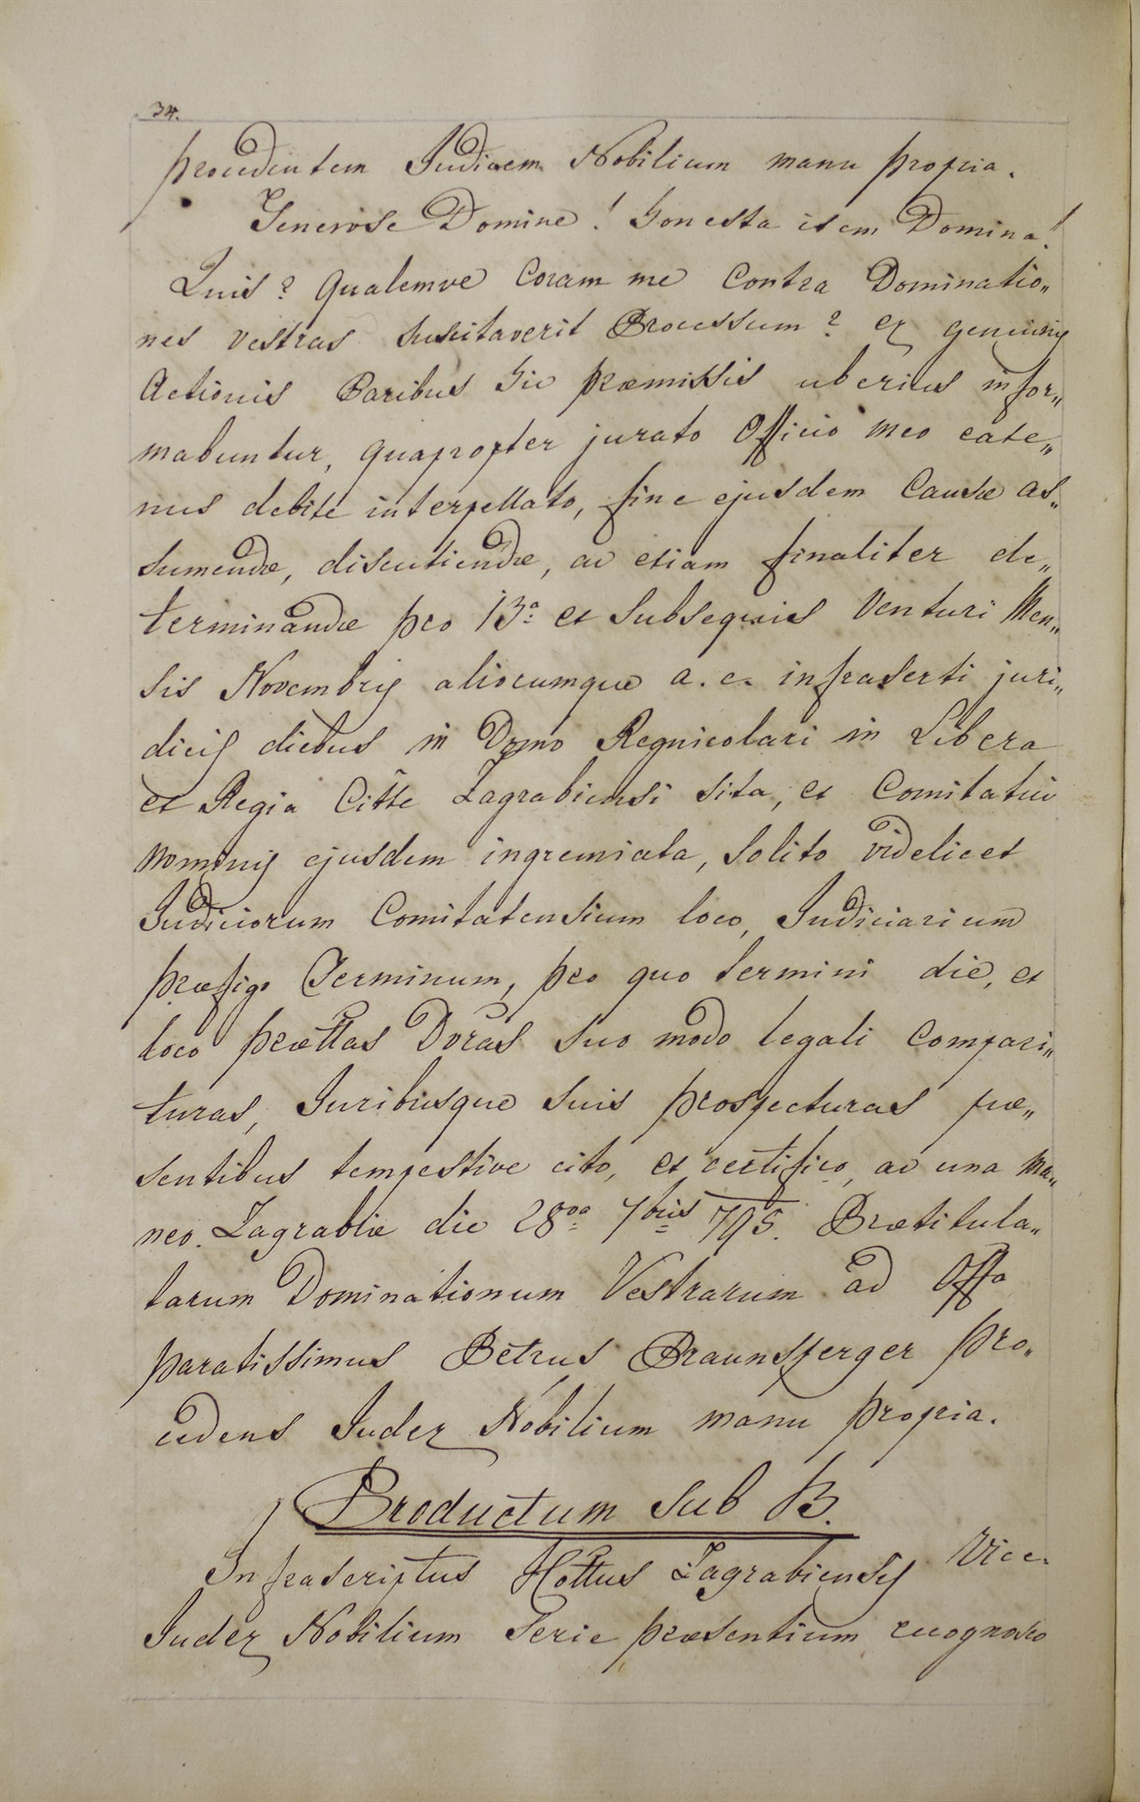 34.
procedentem Judicem Nobilium manu propria.
Generose Domine! Honesta item Domina!
Quis? Qualemve Coram me Contra Dominatio„
nes vestras suscitaverit Processum? ex genuinis
Actionis Paribus hic præmissis uberius infor„
mabuntur, quapropter jurato Officio meo eate„
nus debite interpellato, fine ejusdem Causæ as„
sumendæ, discutiendæ, ac etiam finaliter de„
terminandæ pro 13a et subsequis Venturi Men„
sis Novembris aliocumque a. c. infraserti juri„
dicis diebus in Domo Regnicolari in Libera
et Regia Citte Zagrabiensi sita, et Comitatui
nominis ejusdem ingremiata, solito videlicet
Judiciorum Comitatensium loco, Judiciarium
præfigo Terminum, pro quo termini die, et
loco prættas Doras suo modo legali compari„
turas, Juribusque suis prospecturas præ„
sentibus tempestive cito, et certifico, ac una ma„
neo. Zagrabiæ die 28va 7bris 795. Prætitula„
tarum Dominationum Vestrarum ad Offa
paratissimus Petrus Praunsperger pro„
cedens Judex Nobilium manu propria.
Productum sub B.
Infrascriptus Cottus Zagrabiensis Vice-
Judex Nobilium Serie præsentium recognosco